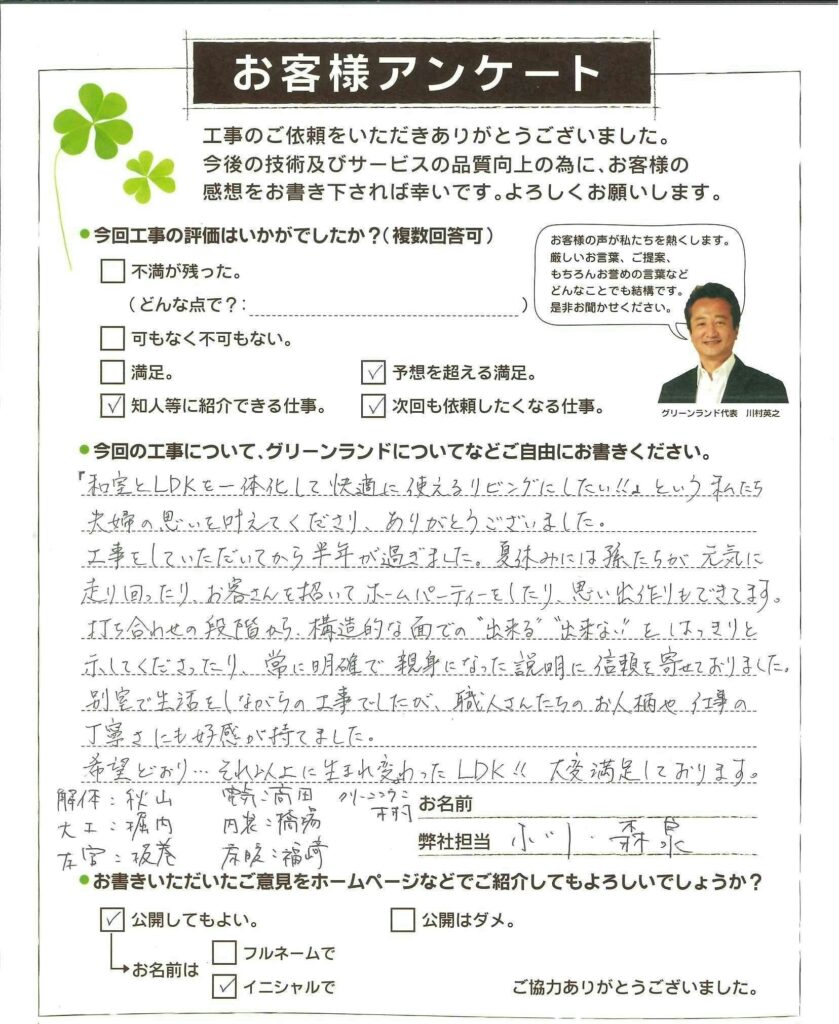 お客様アンケート
工事のご依頼をいただきありがとうございました。
今後の技術及びサービスの品質向上の為に、お客様の
感想をお書き下されば幸いです。よろしくお願いします。
今回工事の評価はいかがでしたか？(複数回答可)
不満が残った。
(どんな点で？: )
可もなく不可もない。
満足。
予想を超える満足。
知人等に紹介できる仕事。
次回も依頼したくなる仕事。
お客様の声が私たちを熱くします。
厳しいお言葉、ご提案、
もちろんお誉めの言葉など
どんなことでも結構です。
是非お聞かせください。
グリーンランド代表 川村英之
今回の工事について、グリーンランドについてなどご自由にお書きください。
『和室とLDKを一体化して快適に使えるリビングにしたい!!』という私たち
夫婦の思いを叶えてくださり、ありがとうございました。
工事をしていただいてから半年が過ぎました。夏休みには孫たちが元気に
走り回ったり、お客さんを招いてホームパーティーをしたり、思い出作りもできてます。
打ち合わせの段階から、構造的な面での"出来る""出来ない"をはっきりと
示してくださったり、常に明確で親身になった説明に信頼を寄せておりました。
別室で生活をしながらの工事でしたが、職人さんたちのお人柄や仕事の
丁寧さにも好感が持てました。
希望どおり…それ以上に生まれ変わったLDK!! 大変満足しております。
解体：秋山 電気：高田 クリーニング：木村
大工：堀内 内装：橋場
左官：坂巻 床暖：福崎
お名前
弊社担当 小川・森泉
お書きいただいたご意見をホームページなどでご紹介してもよろしいでしょうか？
公開してもよい。
公開はダメ。
お名前は
フルネームで
イニシャルで
ご協力ありがとうございました。